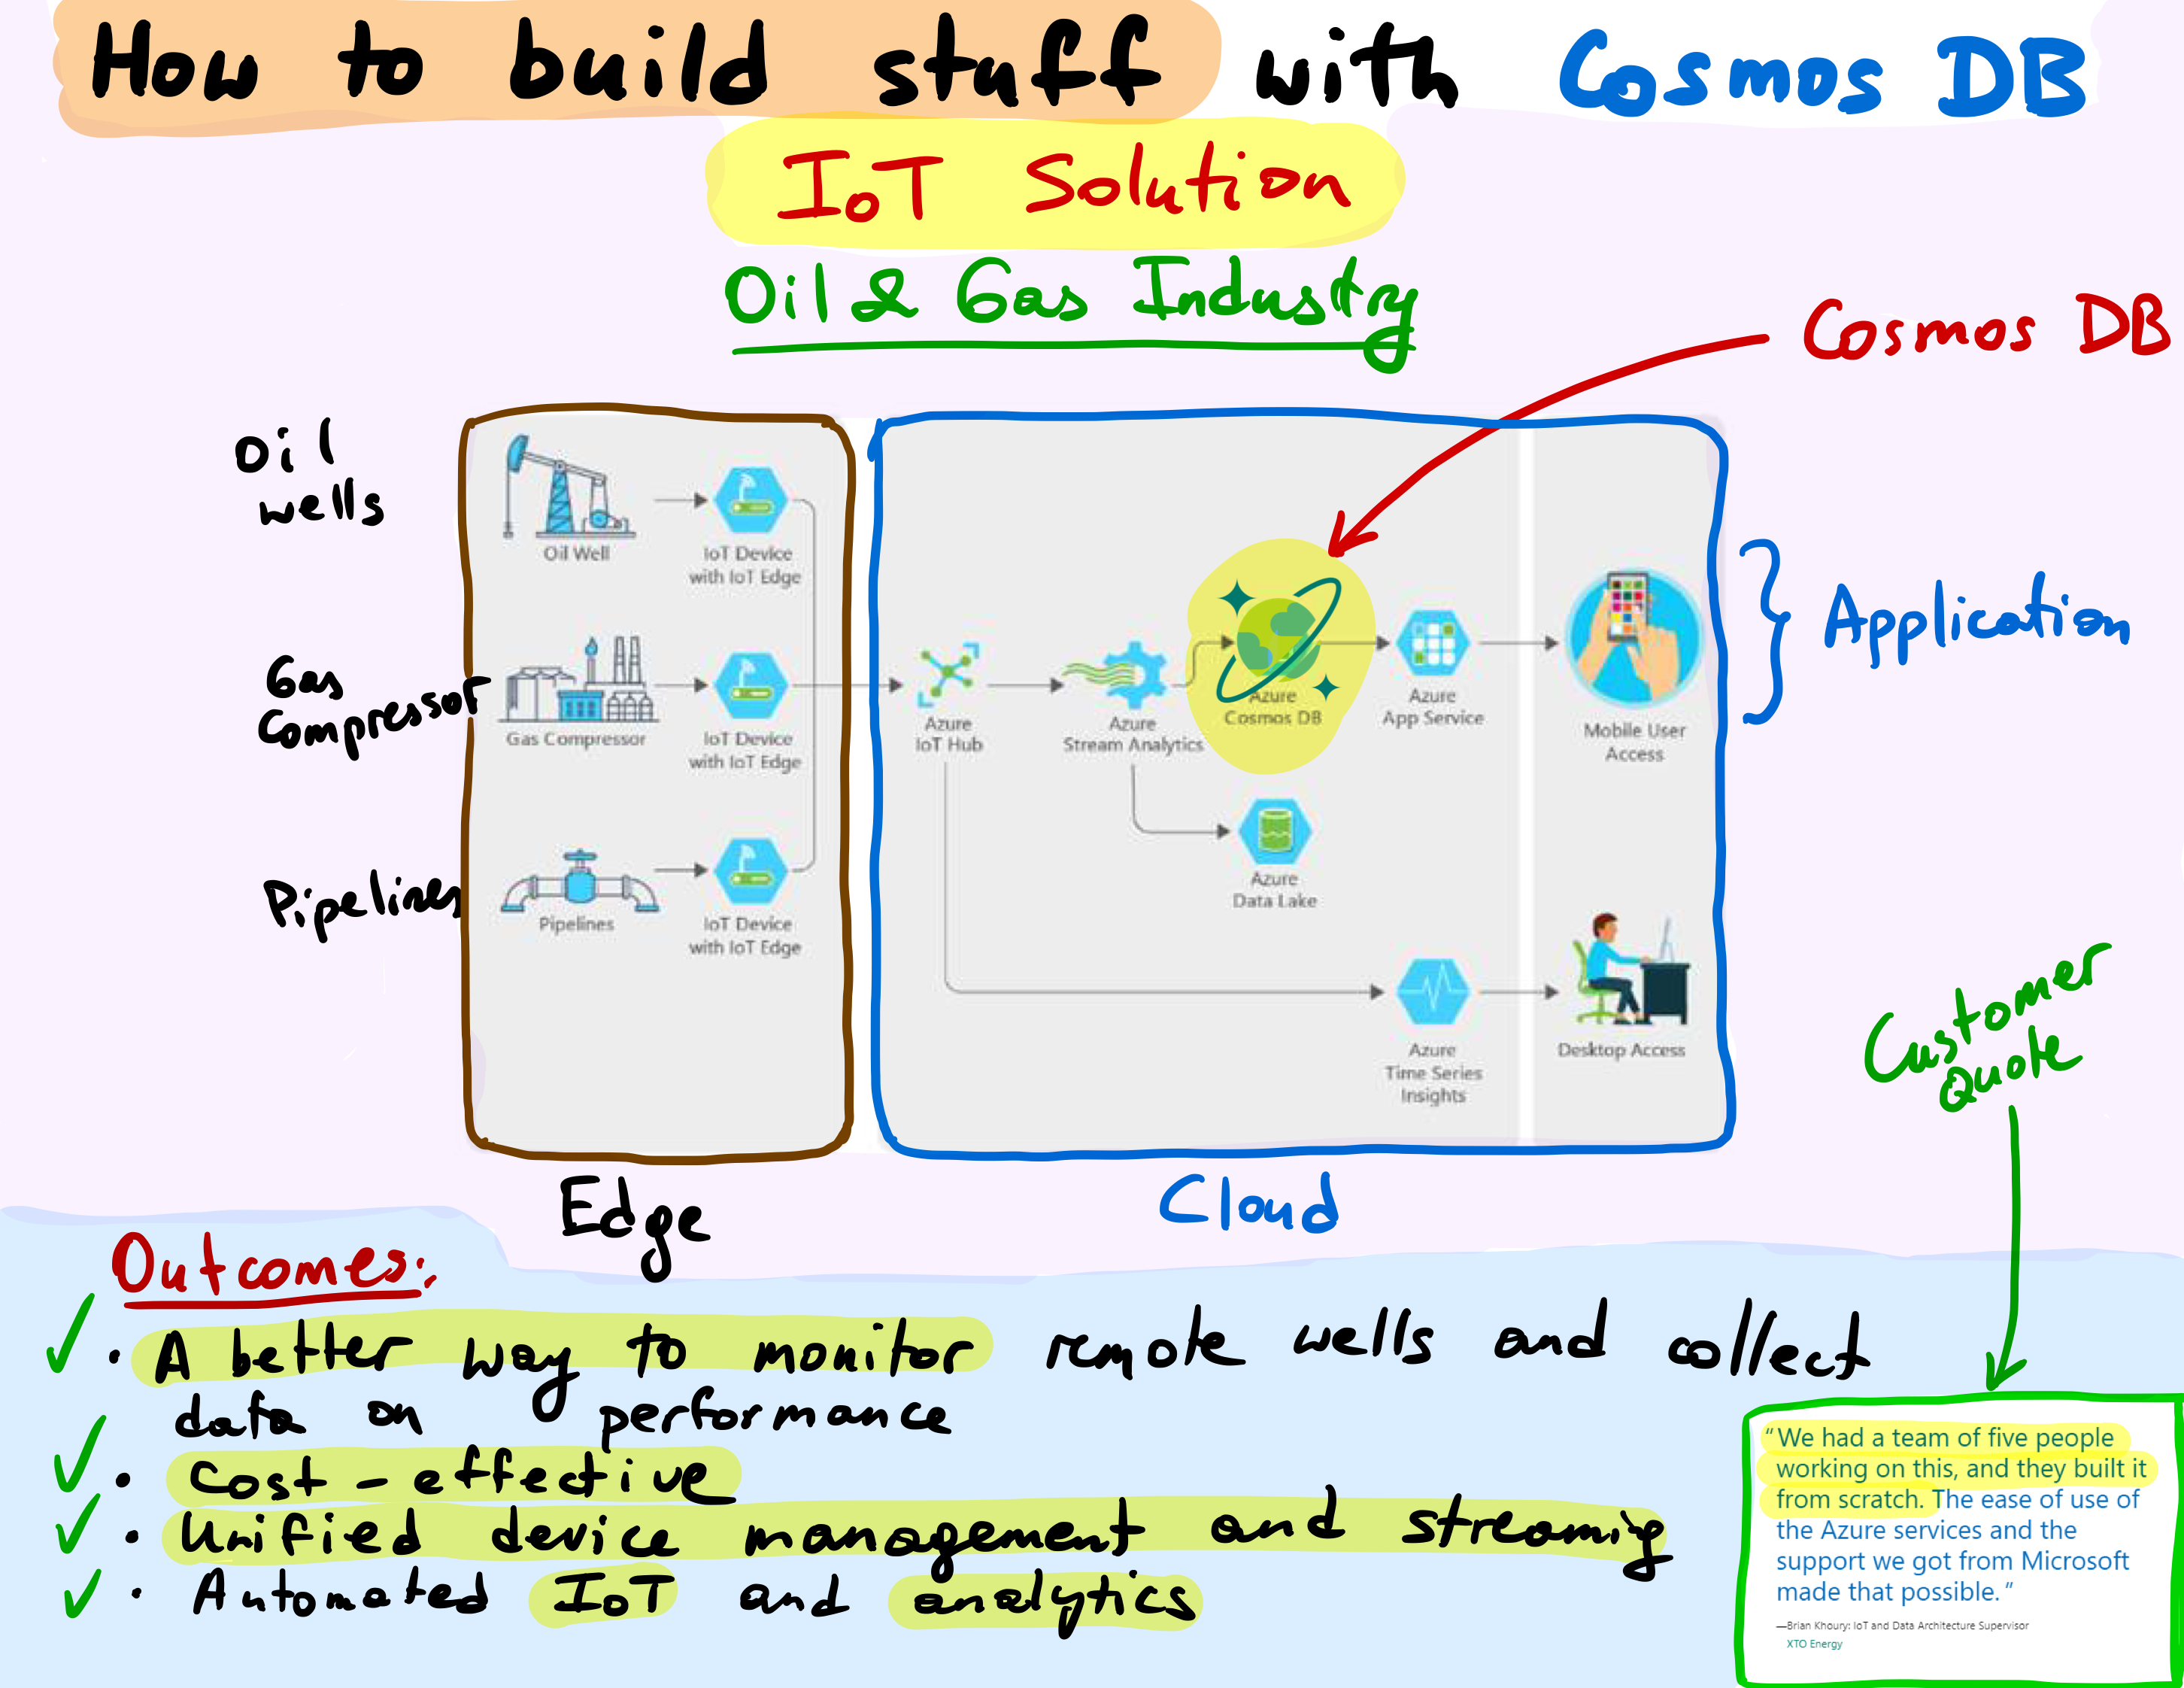 How to build stuff with Cosmos DB
IoT Solution
Oil & Gas Industry
Cosmos DB
Oil
wells
Gas
Compressor
Pipelines
Oil Well
IoT Device
with IoT Edge
Gas Compressor
IoT Device
with IoT Edge
Pipelines
IoT Device
with IoT Edge
Azure
IoT Hub
Azure
Stream Analytics
Azure
Cosmos DB
Azure
App Service
Mobile User
Access
Azure
Data Lake
Azure
Time Series
Insights
Desktop Access
Application
Edge
Cloud
Customer
Quote
Outcomes:
• A better way to monitor remote wells and collect
data on performance
• Cost-effective
• Unified device management and streaming
• Automated IoT and analytics
“We had a team of five people
working on this, and they built it
from scratch. The ease of use of
the Azure services and the
support we got from Microsoft
made that possible.”
—Brian Khoury: IoT and Data Architecture Supervisor
XTO Energy